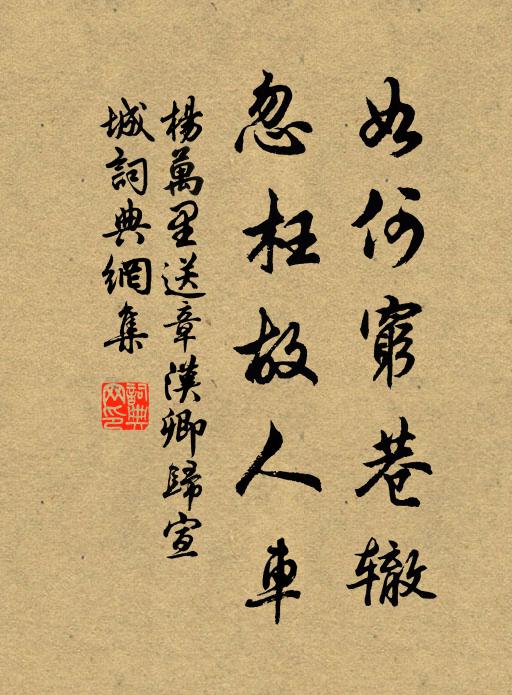 如何窮巷辙
忽枉故人車
楊萬里送章漢卿歸宣
城詞典網集
詞典网印